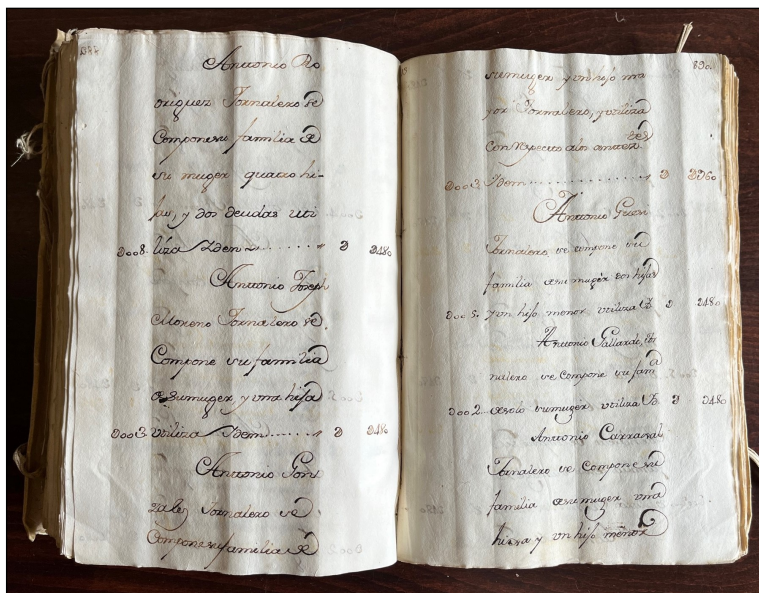 Antonio Ro
driguez Jornalero se
Compone su familia de
su muger quatro hi-
jos, y dos deudas uti
D008. liza Idem D D480
Antonio Joseph
Moreno Jornalero se
Compone su familia
de su muger y una hija
D003. utiliza Idem D D480
Antonio Gonz
zalez Jornalero se
Compone su familia de
890.
su muger y un hijo ma
yor Jornalero, y utiliza
Con Respecto a los
D003. Idem D D960
Antonio
Jornalero se compone su
familia de su muger dos hijas
D005. y un hijo menor utiliza D D480
Antonio Gallardo, Jor
nalero se Compone su fama
D002. de solo su muger utiliza D D480
Antonio Carvasal
Jornalero se Compone su
familia de su muger una
hixa y un hijo menor